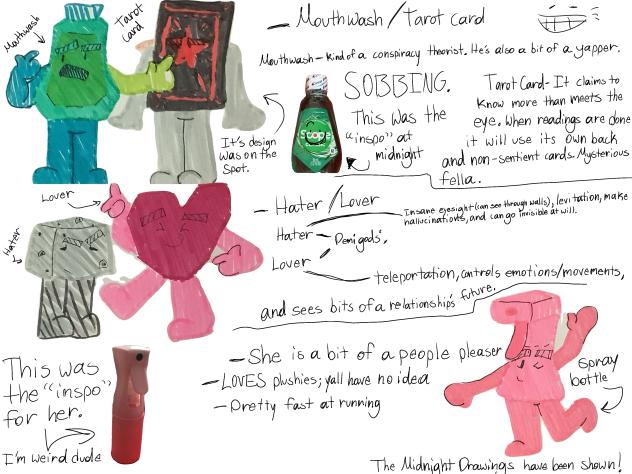 Mouthwash
Tarot
card
— Mouthwash/Tarot card
Mouthwash — kind of a conspiracy theorist. He's also a bit of a yapper.
It's design
was on the
Spot.
Scope
SOBBING.
This was the
"inspo" at
midnight
Tarot Card- It claims to
know more than meets the
eye. When readings are done
it will use its own back
and non-sentient cards. Mysterious
fella.
Lover
Hater
— Hater/Lover
Hater
Lover
Demigods,
Insane eyesight (can see through walls), levitation, make
hallucinations, and can go invisible at will.
teleportation, controls emotions/movements,
and sees bits of a relationships' future.
This was
the "inspo"
for her.
I'm weird dude
— She is a bit of a people pleaser
— LOVES plushies; yall have no idea
— Pretty fast at running
Spray
bottle
The Midnight Drawings have been shown!